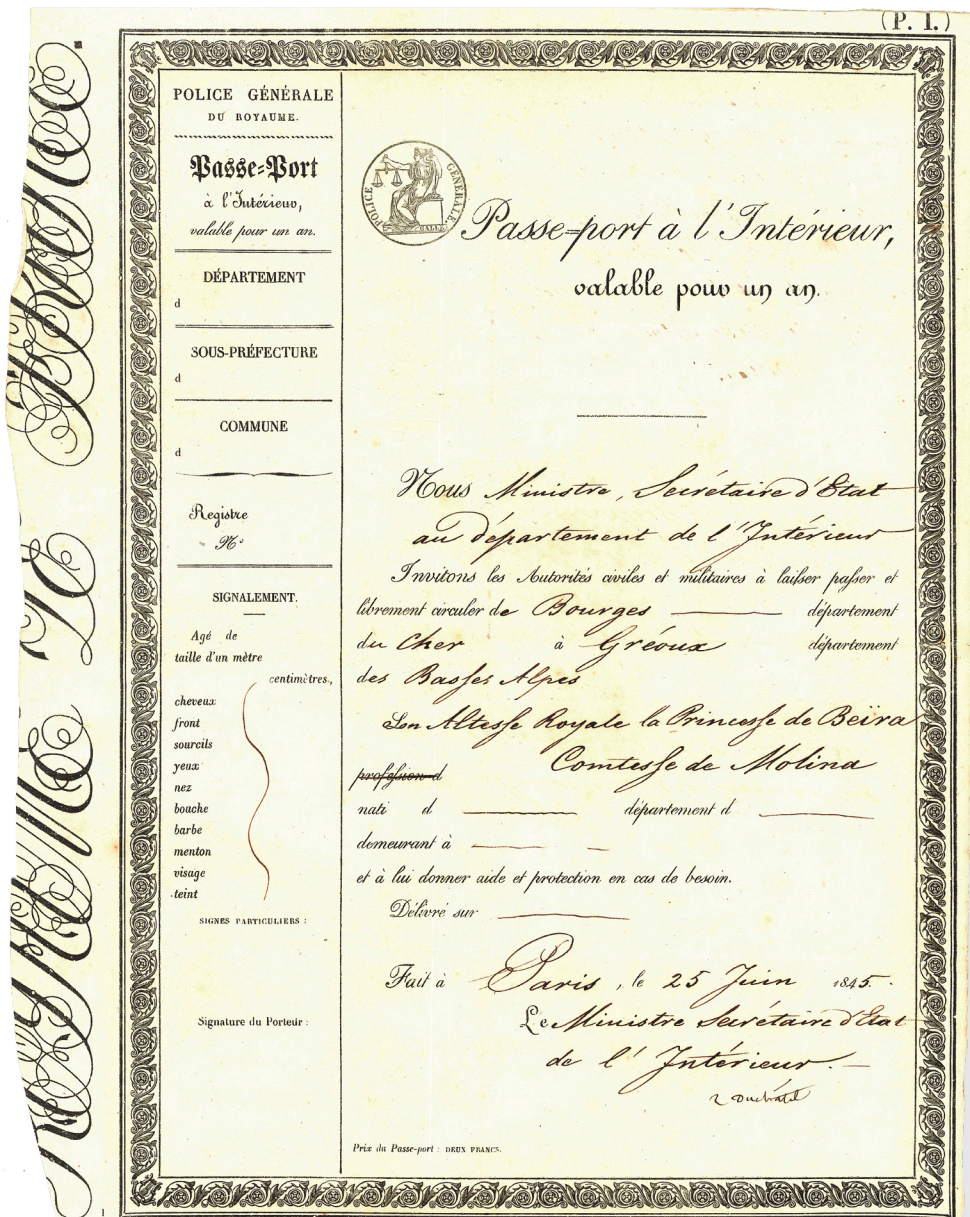 (P. 1.)
ROYAUME DE FRANCE.
POLICE GÉNÉRALE
DU ROYAUME.
Passe=Port
à l'Intérieur,
valable pour un an.
DÉPARTEMENT
d
SOUS-PRÉFECTURE
d
COMMUNE
d
Registre
N°
SIGNALEMENT.
Agé de
taille d'un mètre
centimètres,
cheveux
front
sourcils
yeux
nez
bouche
barbe
menton
visage
teint
SIGNES PARTICULIERS :
Signature du Porteur :
POLICE GÉNÉRALE.
GALLE
Passe=port à l'Intérieur,
valable pour un an.
Nous Ministre, Secrétaire d'Etat
au département de l'Intérieur
Invitons les Autorités civiles et militaires à laisser passer et
librement circuler de Bourges département
du Cher à Gréoux département
des Basses Alpes
Son Altesse Royale la Princesse de Beïra
profession d Comtesse de Molina
nati d département d
demeurant à
et à lui donner aide et protection en cas de besoin.
Délivré sur
Fait à Paris, le 25 Juin 1845.
Le Ministre Secrétaire d'Etat
de l'Intérieur.
Duchâtel
Prix du Passe-port : DEUX FRANCS.